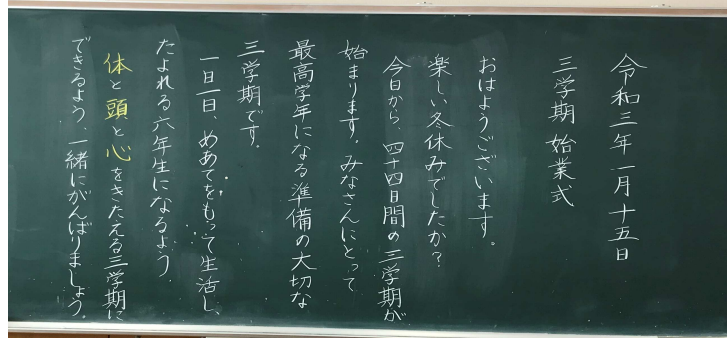 令和三年一月十五日
三学期 始業式
おはようございます。
楽しい冬休みでしたか？
今日から、四十四日間の三学期が
始まります。みなさんにとって
最高学年になる準備の大切な
三学期です。
一日一日、めあてをもって生活し、
たよれる六年生になるよう
体と頭と心をきたえる三学期に
できるよう、一緒にがんばりましょう。